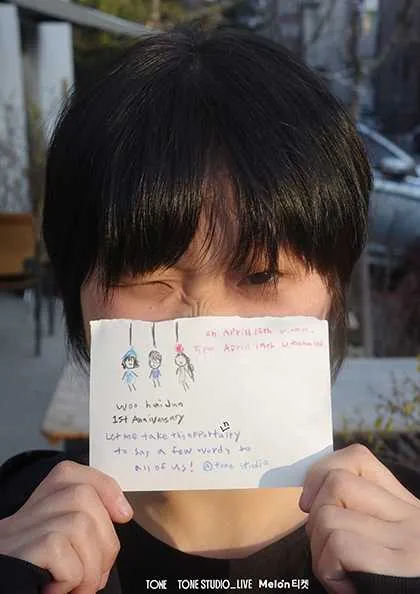 April
5pm April
woo hai Jun
1st Anniversary
Let me take this opportunity
to say a few words to
all of us! @tone studio
TONE TONE STUDIO_LIVE Melon티켓